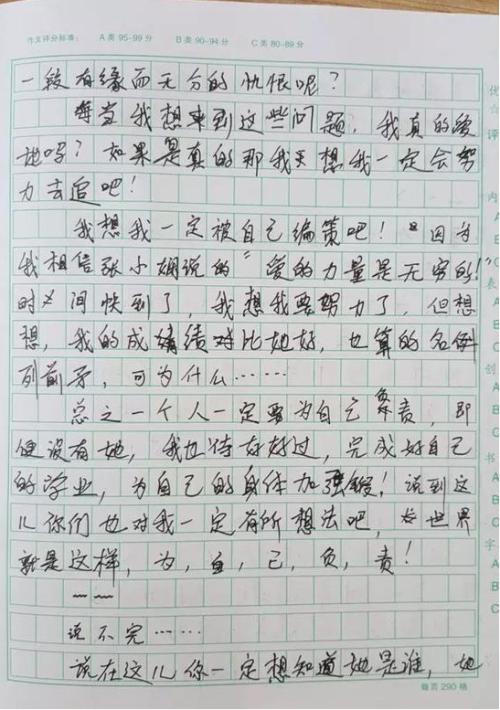 作文评分标准： A类 95-99分 B类 90-94分 C类 80-89分
一般有缘而无分的仇恨呢？
每当我想来到这些问题，我真的爱
她吗？如果是真的那我天想我一定会努
力去追吧！
我想我一定被自己鞭策吧！因为
我相信张小娴说的“爱的力量是无穷的！
时间快到了，我想我要努力了，但想
想，我的成绩绩对比她好，也算的名例
列前矛，可为什么……
总之一个人一定要为自己负责，即
便没有她，我也待好好过，完成好自己
的学业，为自己的身体加强锻！说到这
儿你们也对我一定有所想法吧，世界
就是这样，为，自，己，负，责！
说不完……
说在这儿你一定想知道她是谁，她
每页290格